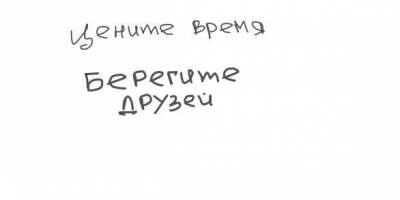 Цените время
Берегите
друзей